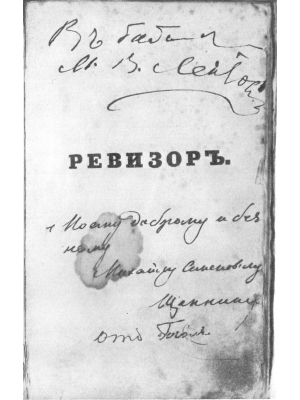 Въ
М. В.
РЕВИЗОРЪ.
Моему доброму и без
ному
Михаилу Семеновичу
Щепкину
отъ Гоголя